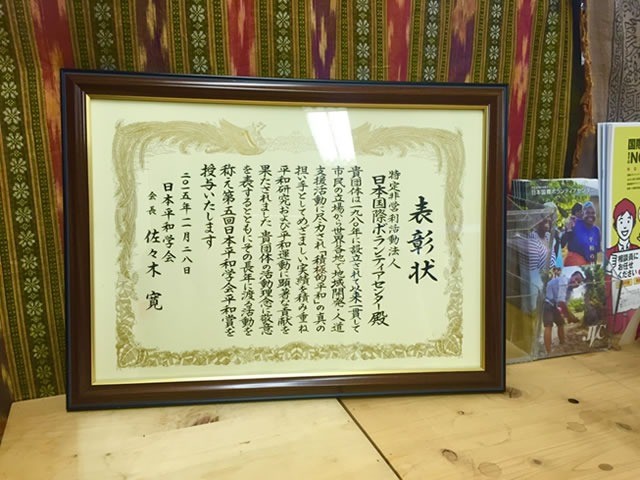 表彰状
特定非営利活動法人
日本国際ボランティアセンター殿
貴団体は一九八〇年に設立されて以来一貫して
市民の立場から世界各地で地域開発・人道
支援活動に尽力され「積極的平和」の真の
担い手としてめざましい実績を積み重ね
平和研究および平和運動に顕著な貢献を
果たされました 貴団体の活動理念に敬意
を表するとともにその長年に渡る活動を
称え第五回日本平和学会平和賞を
授与いたします
二〇一五年一一月二八日
日本平和学会
会長 佐々木 寛
日本国際ボランティアセンター
JVC
国際
NGO
相談員に
お任せ
ください!